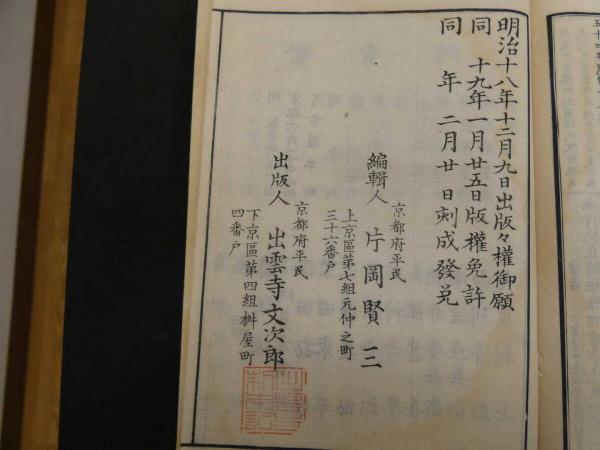 明治十八年十二月九日出版々權御願
同　十九年一月廿五日版權免許
同　年　二月廿日刻成發兌
京都府平民
編輯人　片岡賢三
上京區第七組元仲之町
三十六番戸
京都府平民
出版人　出雲寺文次郎
下京區第四組桝屋町
四番戸